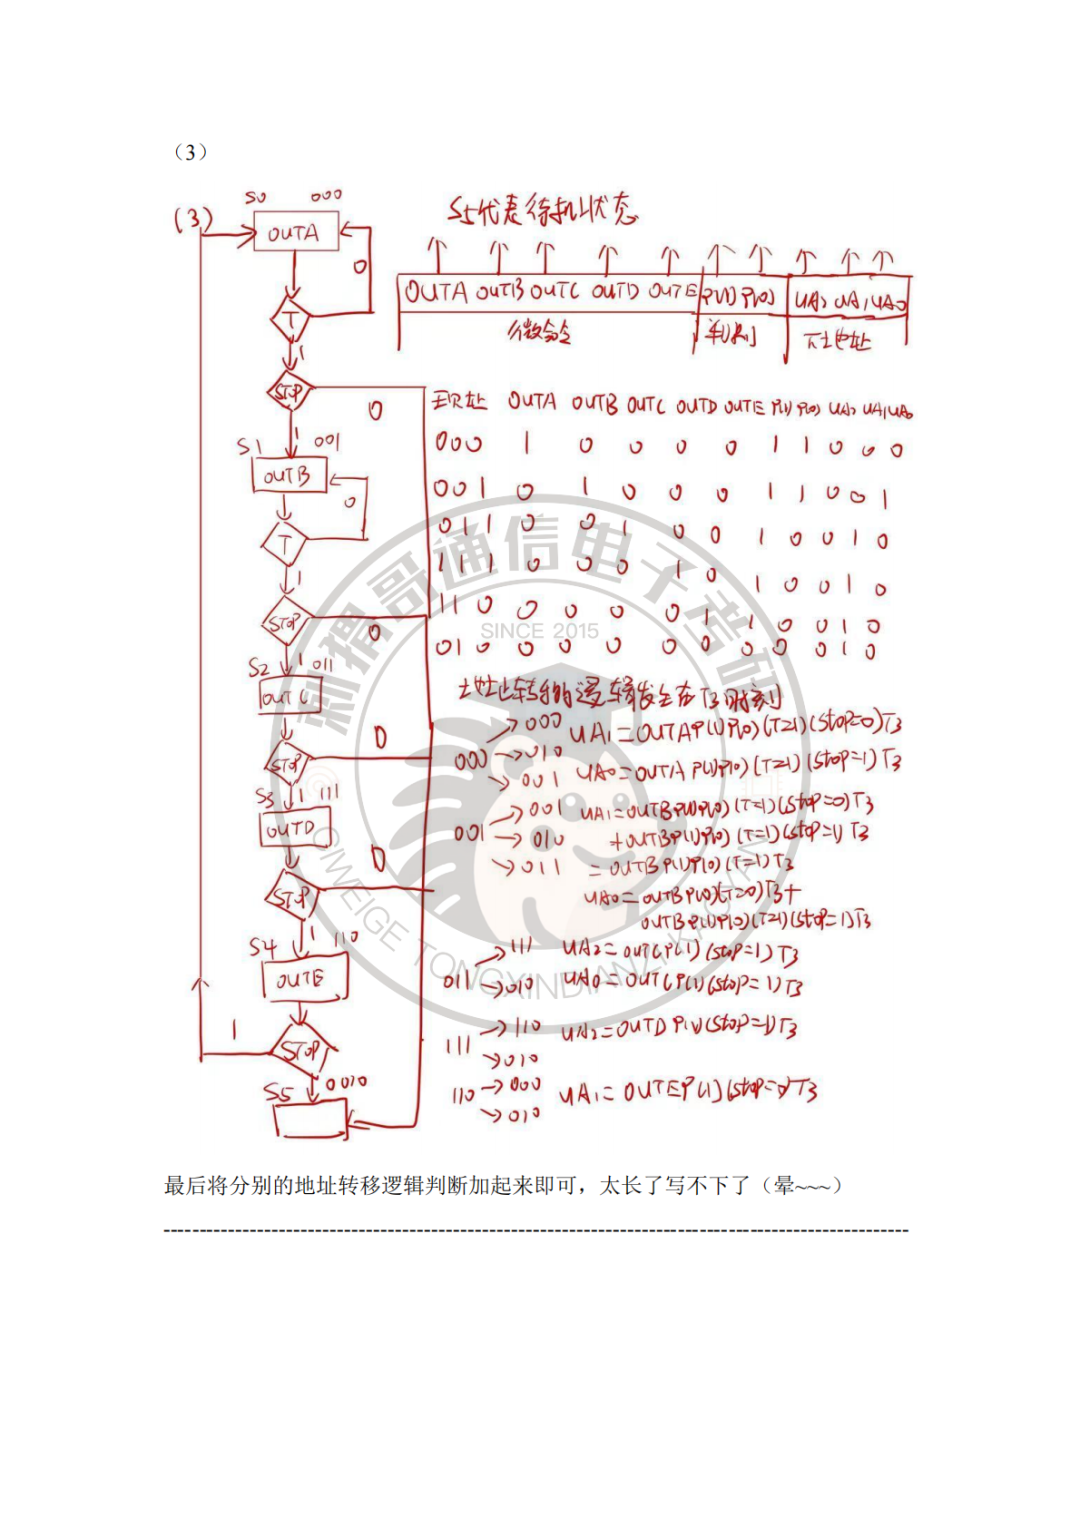 （3）
(3) S0 000 S5代表待机状态
OUTA
0
OUTA OUTB OUTC OUTD OUTE P(1) P(0) UA2 UA1 UA0
微命令 判别 下地址
T
1
STOP 0
现址 OUTA OUTB OUTC OUTD OUTE P(1) P(0) UA2 UA1 UA0
000 1 0 0 0 0 1 1 0 0 0
1
S1 001
OUTB
0
001 0 1 0 0 0 1 1 0 0 1
T
011 0 0 1 0 0 1 0 0 1 0
1
111 0 0 0 1 0 1 0 0 1 0
STOP 0
110 0 0 0 0 1 1 0 0 1 0
010 0 0 0 0 0 0 0 0 1 0
刺猬哥通信电子考研
SINCE 2015
CIWEIGE TONGXINDIANZI KAOYAN
S2 1 011
OUTC
地址转移的逻辑发生在T3时刻
STOP 0
000 →000 UA1=OUTAP(1)P(0)(T=1)(STOP=0)T3
→010
→001 UA0=OUTA P(1)P(0)(T=1)(STOP=1)T3
S3 1 111
OUTD
001 →001 UA1=OUTBP(1)P(0)(T=1)(STOP=0)T3
→010 +OUTBP(1)P(0)(T=1)(STOP=1)T3
→011 =OUTBP(1)P(0)(T=1)T3
UA0=OUTBP(0)(T=0)T3+
OUTBP(1)P(0)(T=1)(STOP=1)T3
STOP 0
1 110
S4
OUTE
011 →111 UA2=OUTCP(1)(STOP=1)T3
→010 UA0=OUTCP(1)(STOP=1)T3
1 STOP
111 →110 UA2=OUTD P(1)(STOP=1)T3
→010
S5 0010
110 →000 UA1=OUTEP(1)(STOP=0)T3
→010
最后将分别的地址转移逻辑判断加起来即可，太长了写不下了（晕~~~）